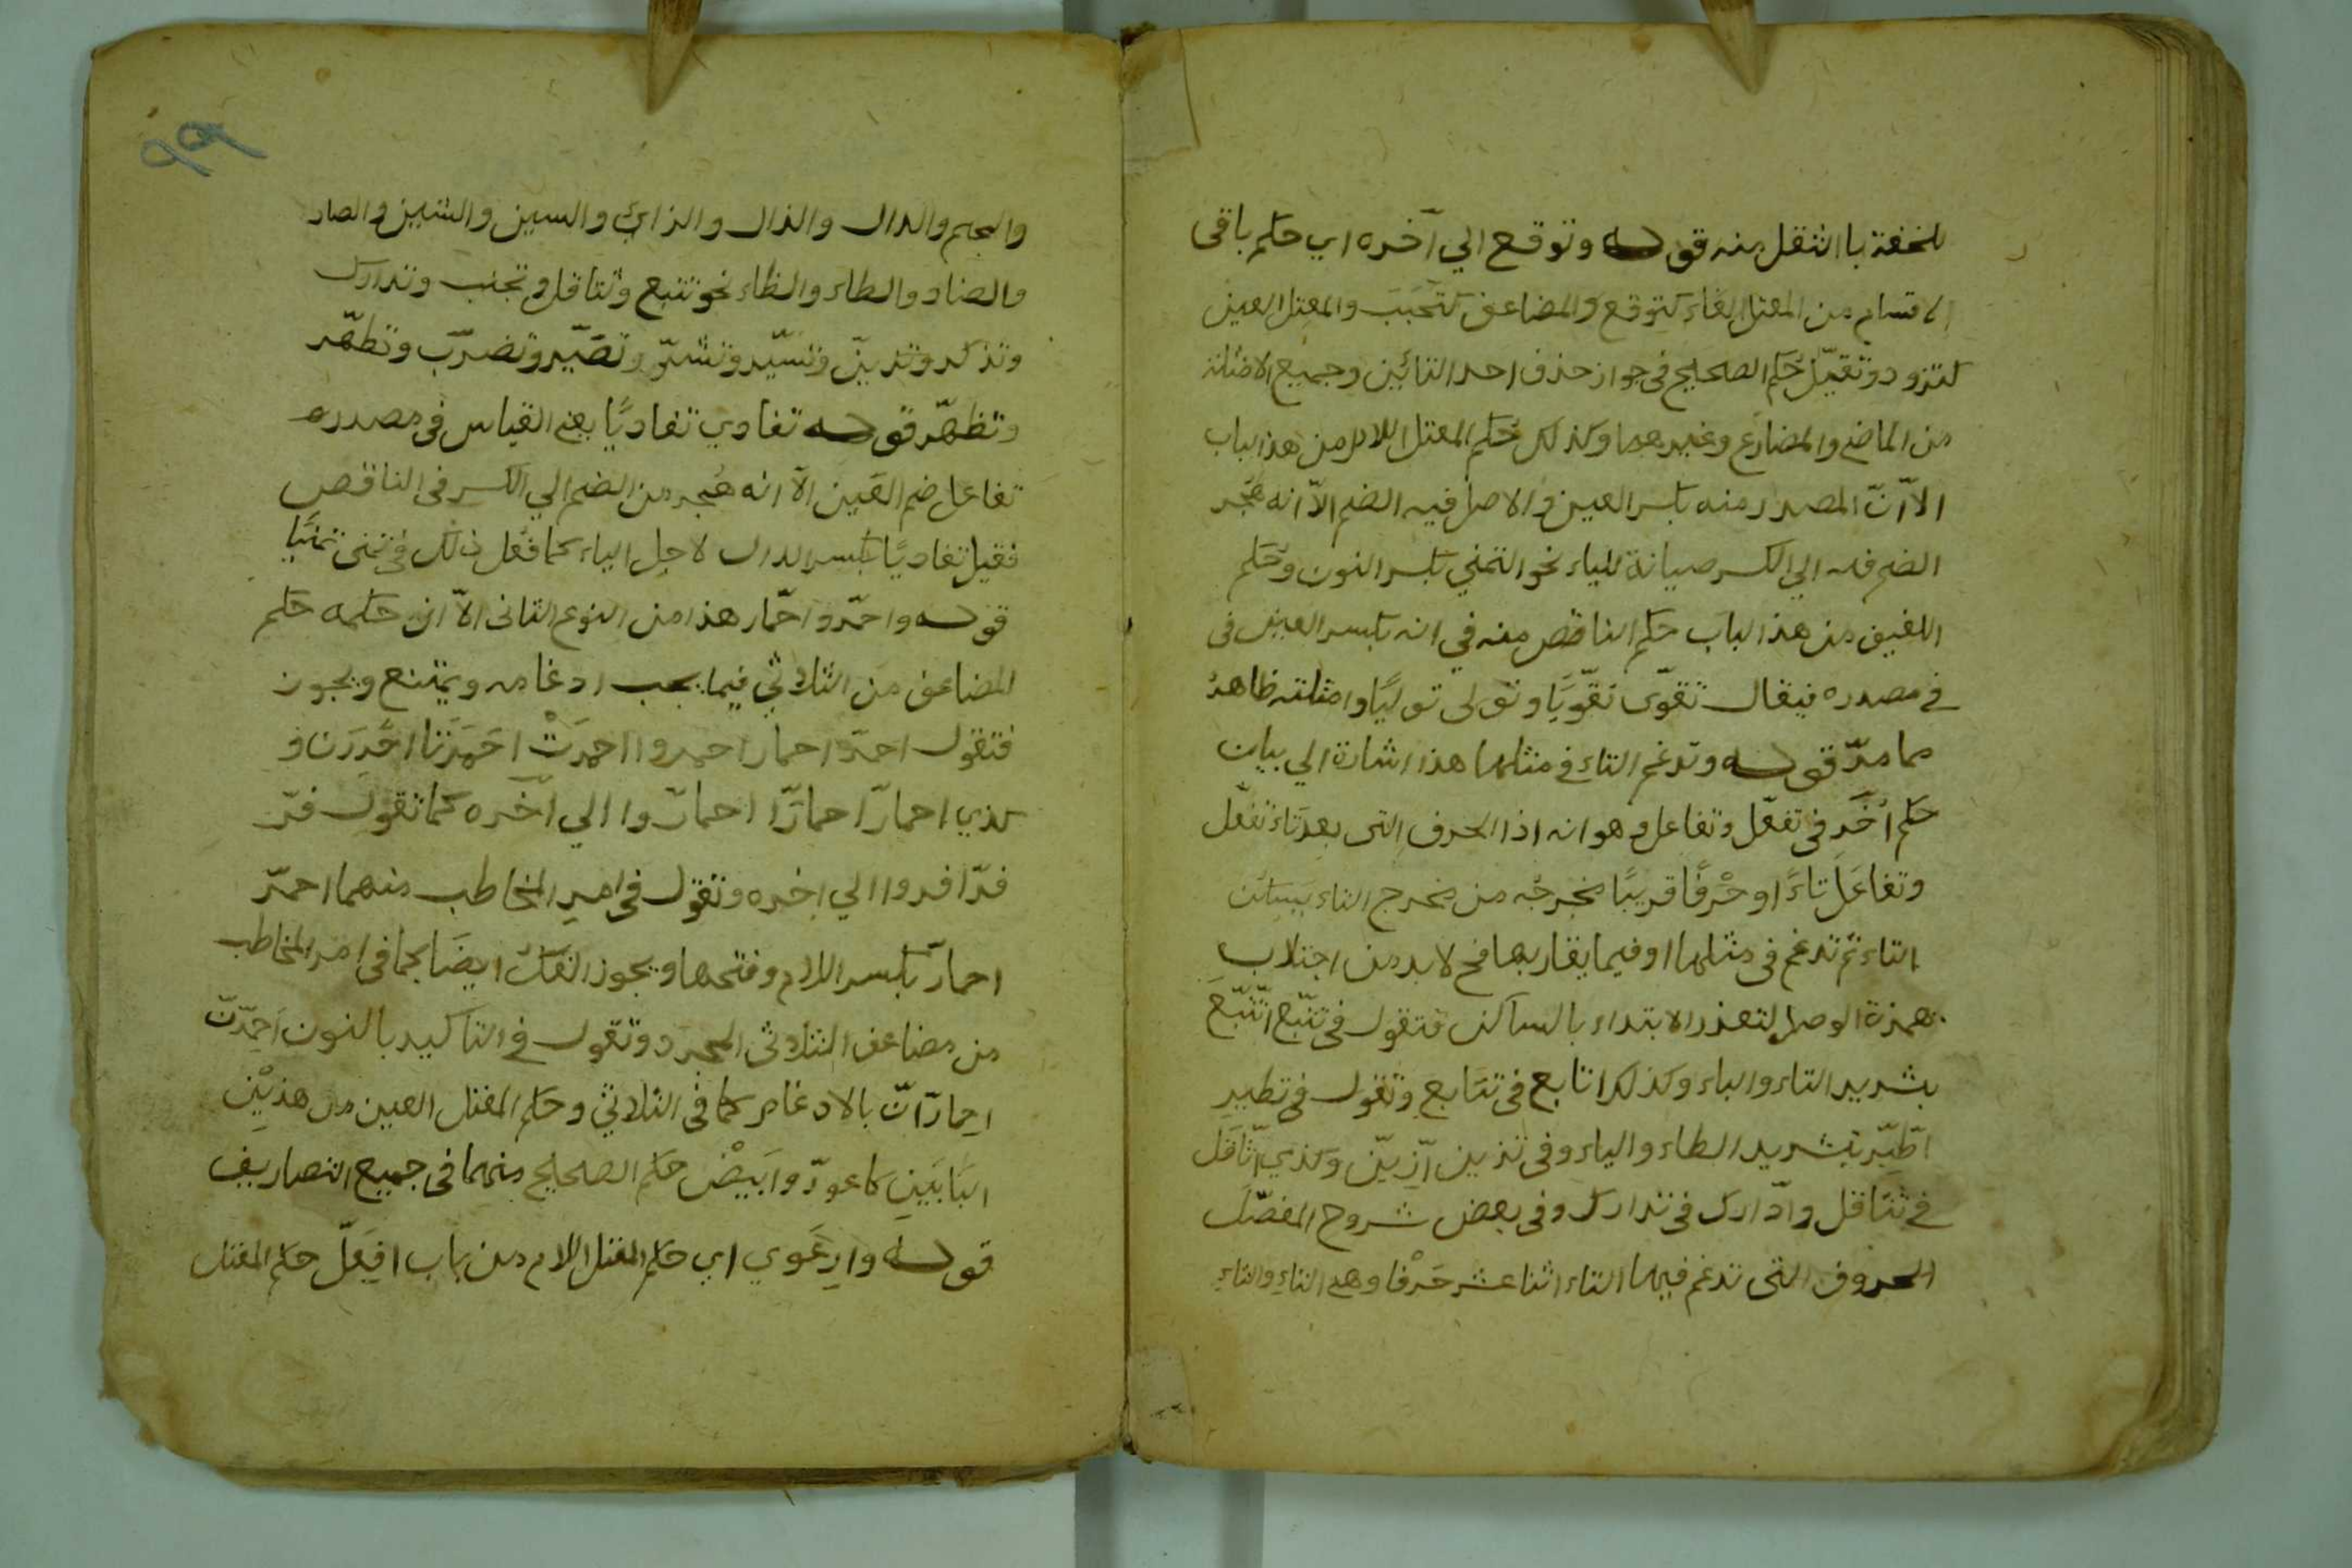 للخفة باالثقل منه قوله وتوقع الي آخره اي حكم باقى
الاقسام من المعتل الفاء كتوقع والمضاعف كتحبب والمعتل العين
كتزود وتقيّل حكم الصحيح فى جواز حذف احد التائين وجميع الامثلة
من الماضي والمضارع وغيرهما وكذلك حكم المعتل اللام من هذا الباب
الاّ انّ المصدر منه بكسر العين والاصل فيه الضم الاّ انه هجر
الضم فيه الي الكسر صيانة للياء نحو التمني بكسر النون وحكم
اللفيف من هذا الباب حكم الناقص منه في انه بكسر العين فى
في مصدره فيقال تقوّى تقوّيًا وتولى توليًا وامثلته ظاهرُ
مما مرّ قوله وتدغم التاء في مثلها هذا اشارة الي بيان
حكم اُخَر فى تفعّل وتفاعل وهو انه اذا الحرف التى بعد تاء تفعّل
وتفاعَل تاءً او حرْفًا قريبًا مخرجُه من مخرج التاء يسكن
التاء ثم تدغم فى مثلها او فيما يقاربها فح لا بد من اجتلاب
همزة الوصل لتعذر الابتداء بالساكن فتقول فى تتبّع اتّبّع
بشديد التاء والباء وكذلك اتابع فى تتَابع وتقول فى تطير
اطّيّر بتشديد الطاء والياء وفى تزين ازّيّن وكذي اثّاقَل
في تثاقل وادّارك فى تدارك وفى بعض شروح المفصّل
الحروف التى تدغم فيها التاء اثنا عشر حرْفا وهي التاء والثاء
والجيم والدال والذال والزاي والسين والشين والصاد
والضاد والطاء والظاء نحو تتبع وتثاقل وتجنب وتدارك
وتذكر وتزيّن وتسيّر وتشمّر وتصيّر وتضرّب وتطهّر
وتظهّر قوله تفادي تفاديًا يعني القياس فى مصدره
تفاعل ضم العَين الاّ انه هُجر من الضم الي الكسر فى الناقص
فقيل تفاديًا بكسر الدال لاجل الياء كما فعُل ذلك فى تمنى تمنّيًا
قوله واحمّر واحمّار هذا من النوع الثانى الاّ ان حكمه حكم
المضاعف من الثلاثي فيما يجب ادغامه ويمتنع ويجوز
فتقول احمرّ احمارّ احمروا احمرتْ احمَرّتا احْمَرَرن و
كذي احمارّ احمارّا احمارّوا الي آخره كما تقول فرّ
فرّا فروا الي اخره وتقول فى امر المخاطب منهما احمرّ
احمارّ بكسر اللام وفتحها ويجوز الفكّ ايضًا كما فى امر المخاطب
من مضاعف الثلاثى المجرد وتقول في التاكيد بالنون احمرّنّ
احمارّانّ بالادغام كما فى الثلاثي وحكم المعتل العين من هذيْن
البَابَين كاعورّ وابَيضّ حكم الصحيح منهما فى جميع التصاريف
قوله وارعَوي اي حكم المعتل اللام من باب افعَلّ حكم المعتل